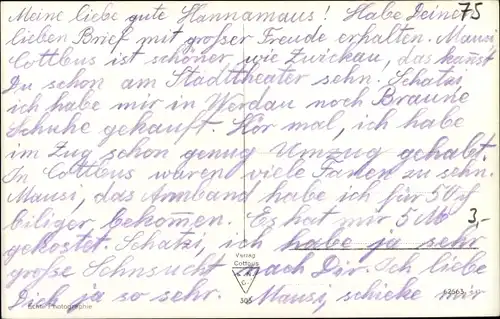 Meine liebe gute Hannamaus! Habe Deinen 75
lieben Brief mit großer Freude erhalten. Mausi
Cottbus ist schöner wie Zwickau, das kannst
Du schon am Stadttheater sehn. Schatzi
ich habe mir in Werdau noch Braune
Schuhe gekauft. Hör mal, ich habe
im Zug schon genug Umzug gehabt.
In Cottbus waren viele Farlen zu sehn.
Mausi, das Armband habe ich für 50 ₰
biliger bekommen. Es hat mir 5 M 3,-
gekostet. Schatzi, ich habe ja sehr
Verlag
Cottbus
große Sehnsucht nach Dir. Ich liebe
Dich ja so sehr. Mausi, schicke mir
Echte Photographie
305
62663